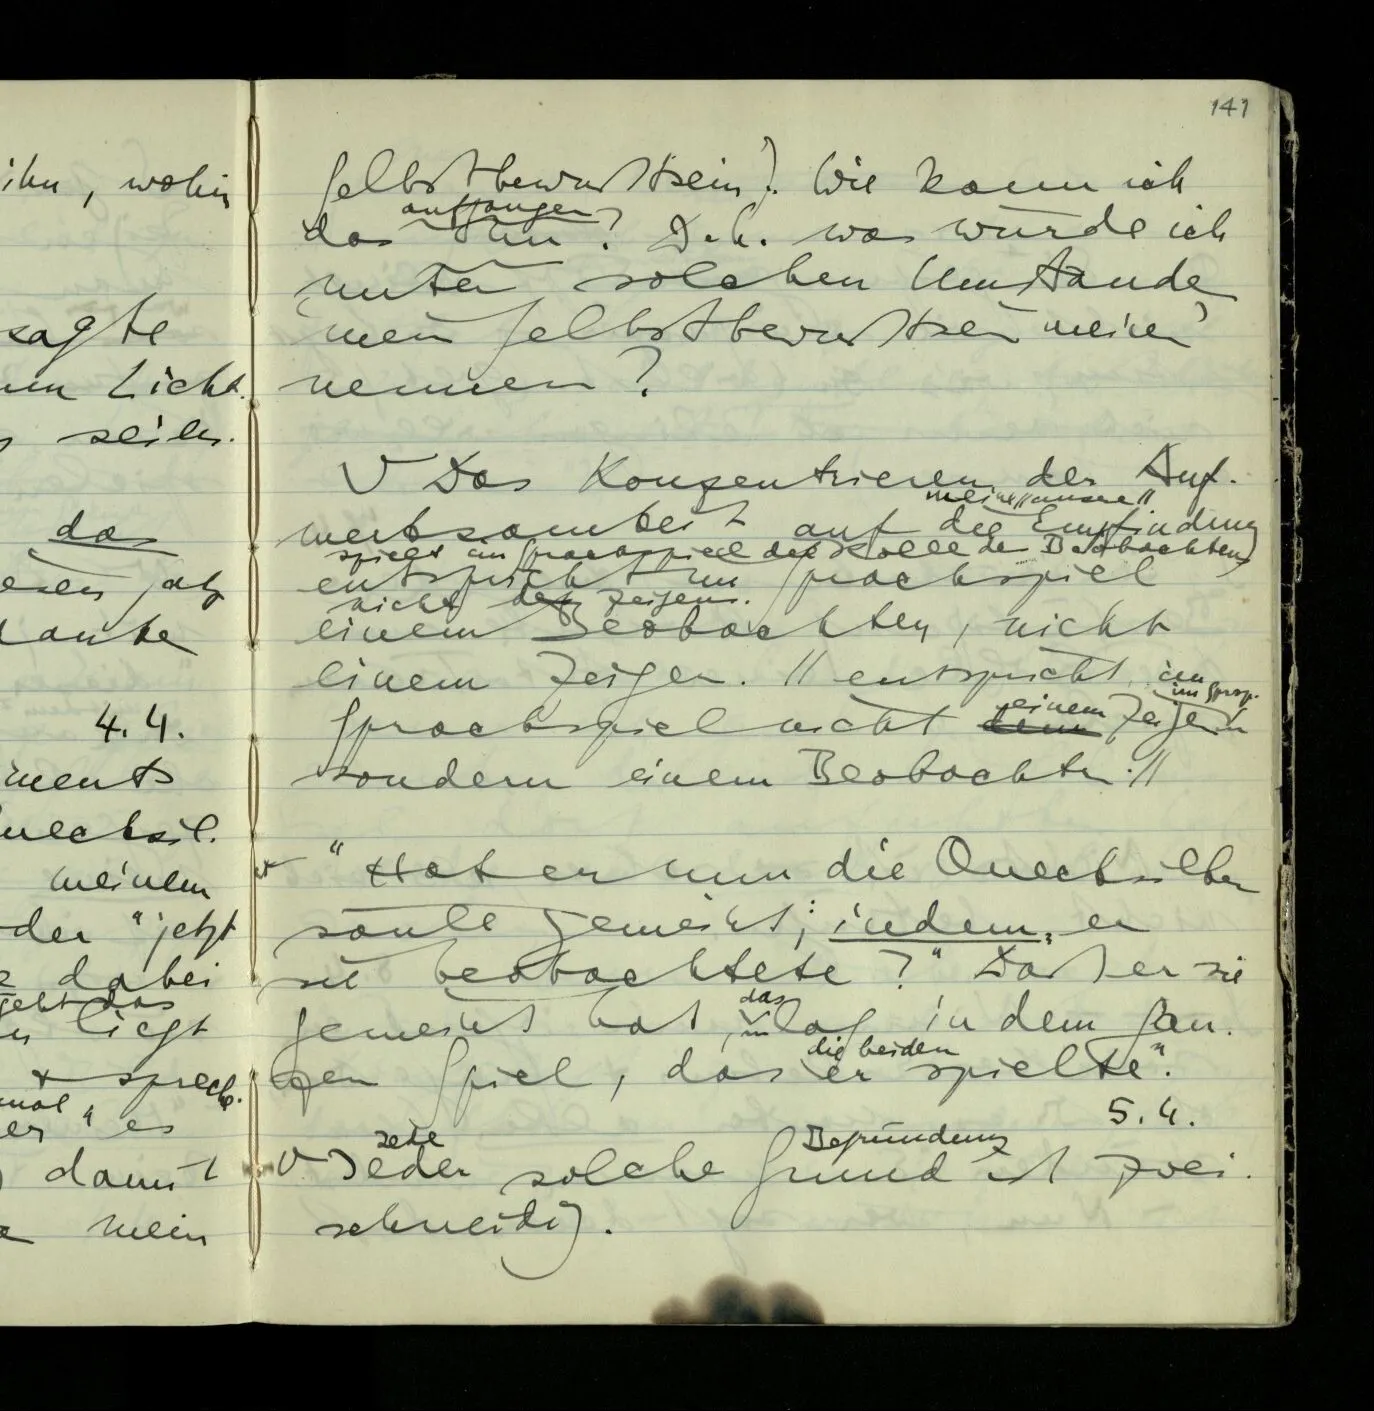 ihn, wohin
sagte
um Licht.
seiler.
das
4.4.
ments
Quecksil-
meinem
oder "jetzt
dabei
geht das
liegt
+ sprech-
mal
er " es
damit
mein
141
Selbstbewusstsein). Wie kann ich
anfangen?
das tun? D.h. was würde ich
unter solchen Umstände
'mein Selbstbewusstsein meinen'
nennen?
V Das Konzentrieren der Auf-
meine // unsere //
merksamkeit auf die Empfindung
spielt im Sprachspiel die Rolle des Beobachtens
entspricht im Sprachspiel
nicht des Zeigens.
einem Beobachten, nicht
einem Zeigen. // entspricht im
im Sprsp.
einem
Sprachspiel nicht dem Zeigen
sondern einem Beobachten. //
v "Hat er nun die Quecksilber
säule gemeint; indem, er
sie beobachtete?" Dass er sie
das
gemeint hat, lag in dem gan-
die beiden
zen Spiel, das er spielte".
5.4.
Jede Begründung
V Jeder solche Grund ist zwei-
schneidig.